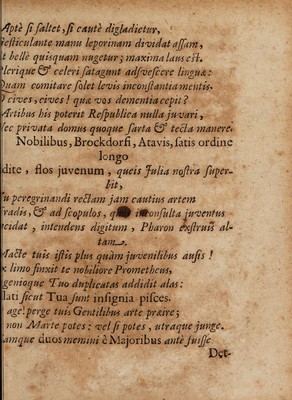 Aptè si saltet, si cautè digladietur,
esticulante manu leporinam dividat assam,
t bellè quisquam nugetur; maxima laus est.
lerique & celeri satagunt adsvescere linguæ:
Quam comitare solet levis inconstantia mentis.
cives, cives! quæ vos dementia cepit?
Actibus his poterit Respublica nulla juvari,
ec privata domus quoque sarta & tecta manere.
Nobilibus, Brockdorfi, Atavis, satis ordine
longo
dite, flos juvenum, queis Julia nostra super-
bit,
u peregrinandi rectam jam cautius artem
radis, & ad scopulos, quò inconsulta juventus
cidat, intendens digitum, Pharon exstruis al-
tam.
Macte tuis istis plus quàm juvenilibus ausis!
x limo finxit te nobiliore Prometheus,
genioque Tuo duplicatas addidit alas:
lati sicut Tua sunt insignia pisces.
age! perge tuis Gentilibus arte præire;
non Marte potes: vel si potes, utraque junge.
amque duos memini è Majoribus antè fuisse
Det-